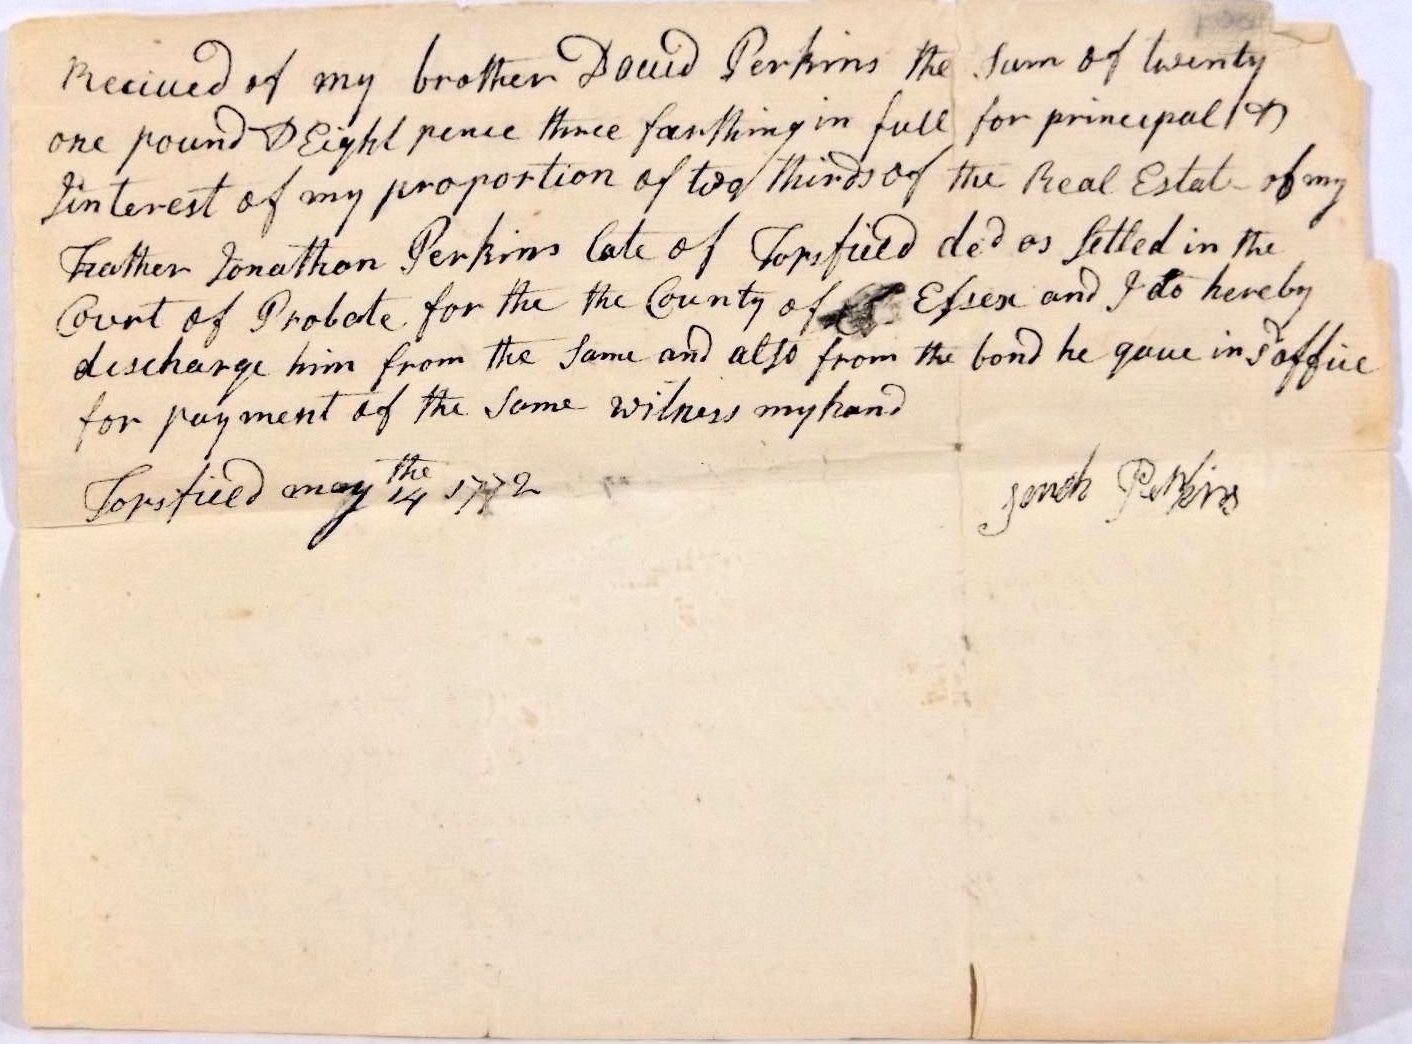 Reciued of my brother Dauid Perkins the Sum of twenty
one pound & Eight pence three farthing in full for principal &
Interest of my proportion of two thirds of the Real Estate of my
Father Jonathan Perkins late of Topsfield decd as Setled in the
Court of Probate for the the County of Essex and I do hereby
discharge him from the Same and also from the bond he gaue in sd office
for payment of the Same witness my hand
Topsfield may the 14 1772
Perkins